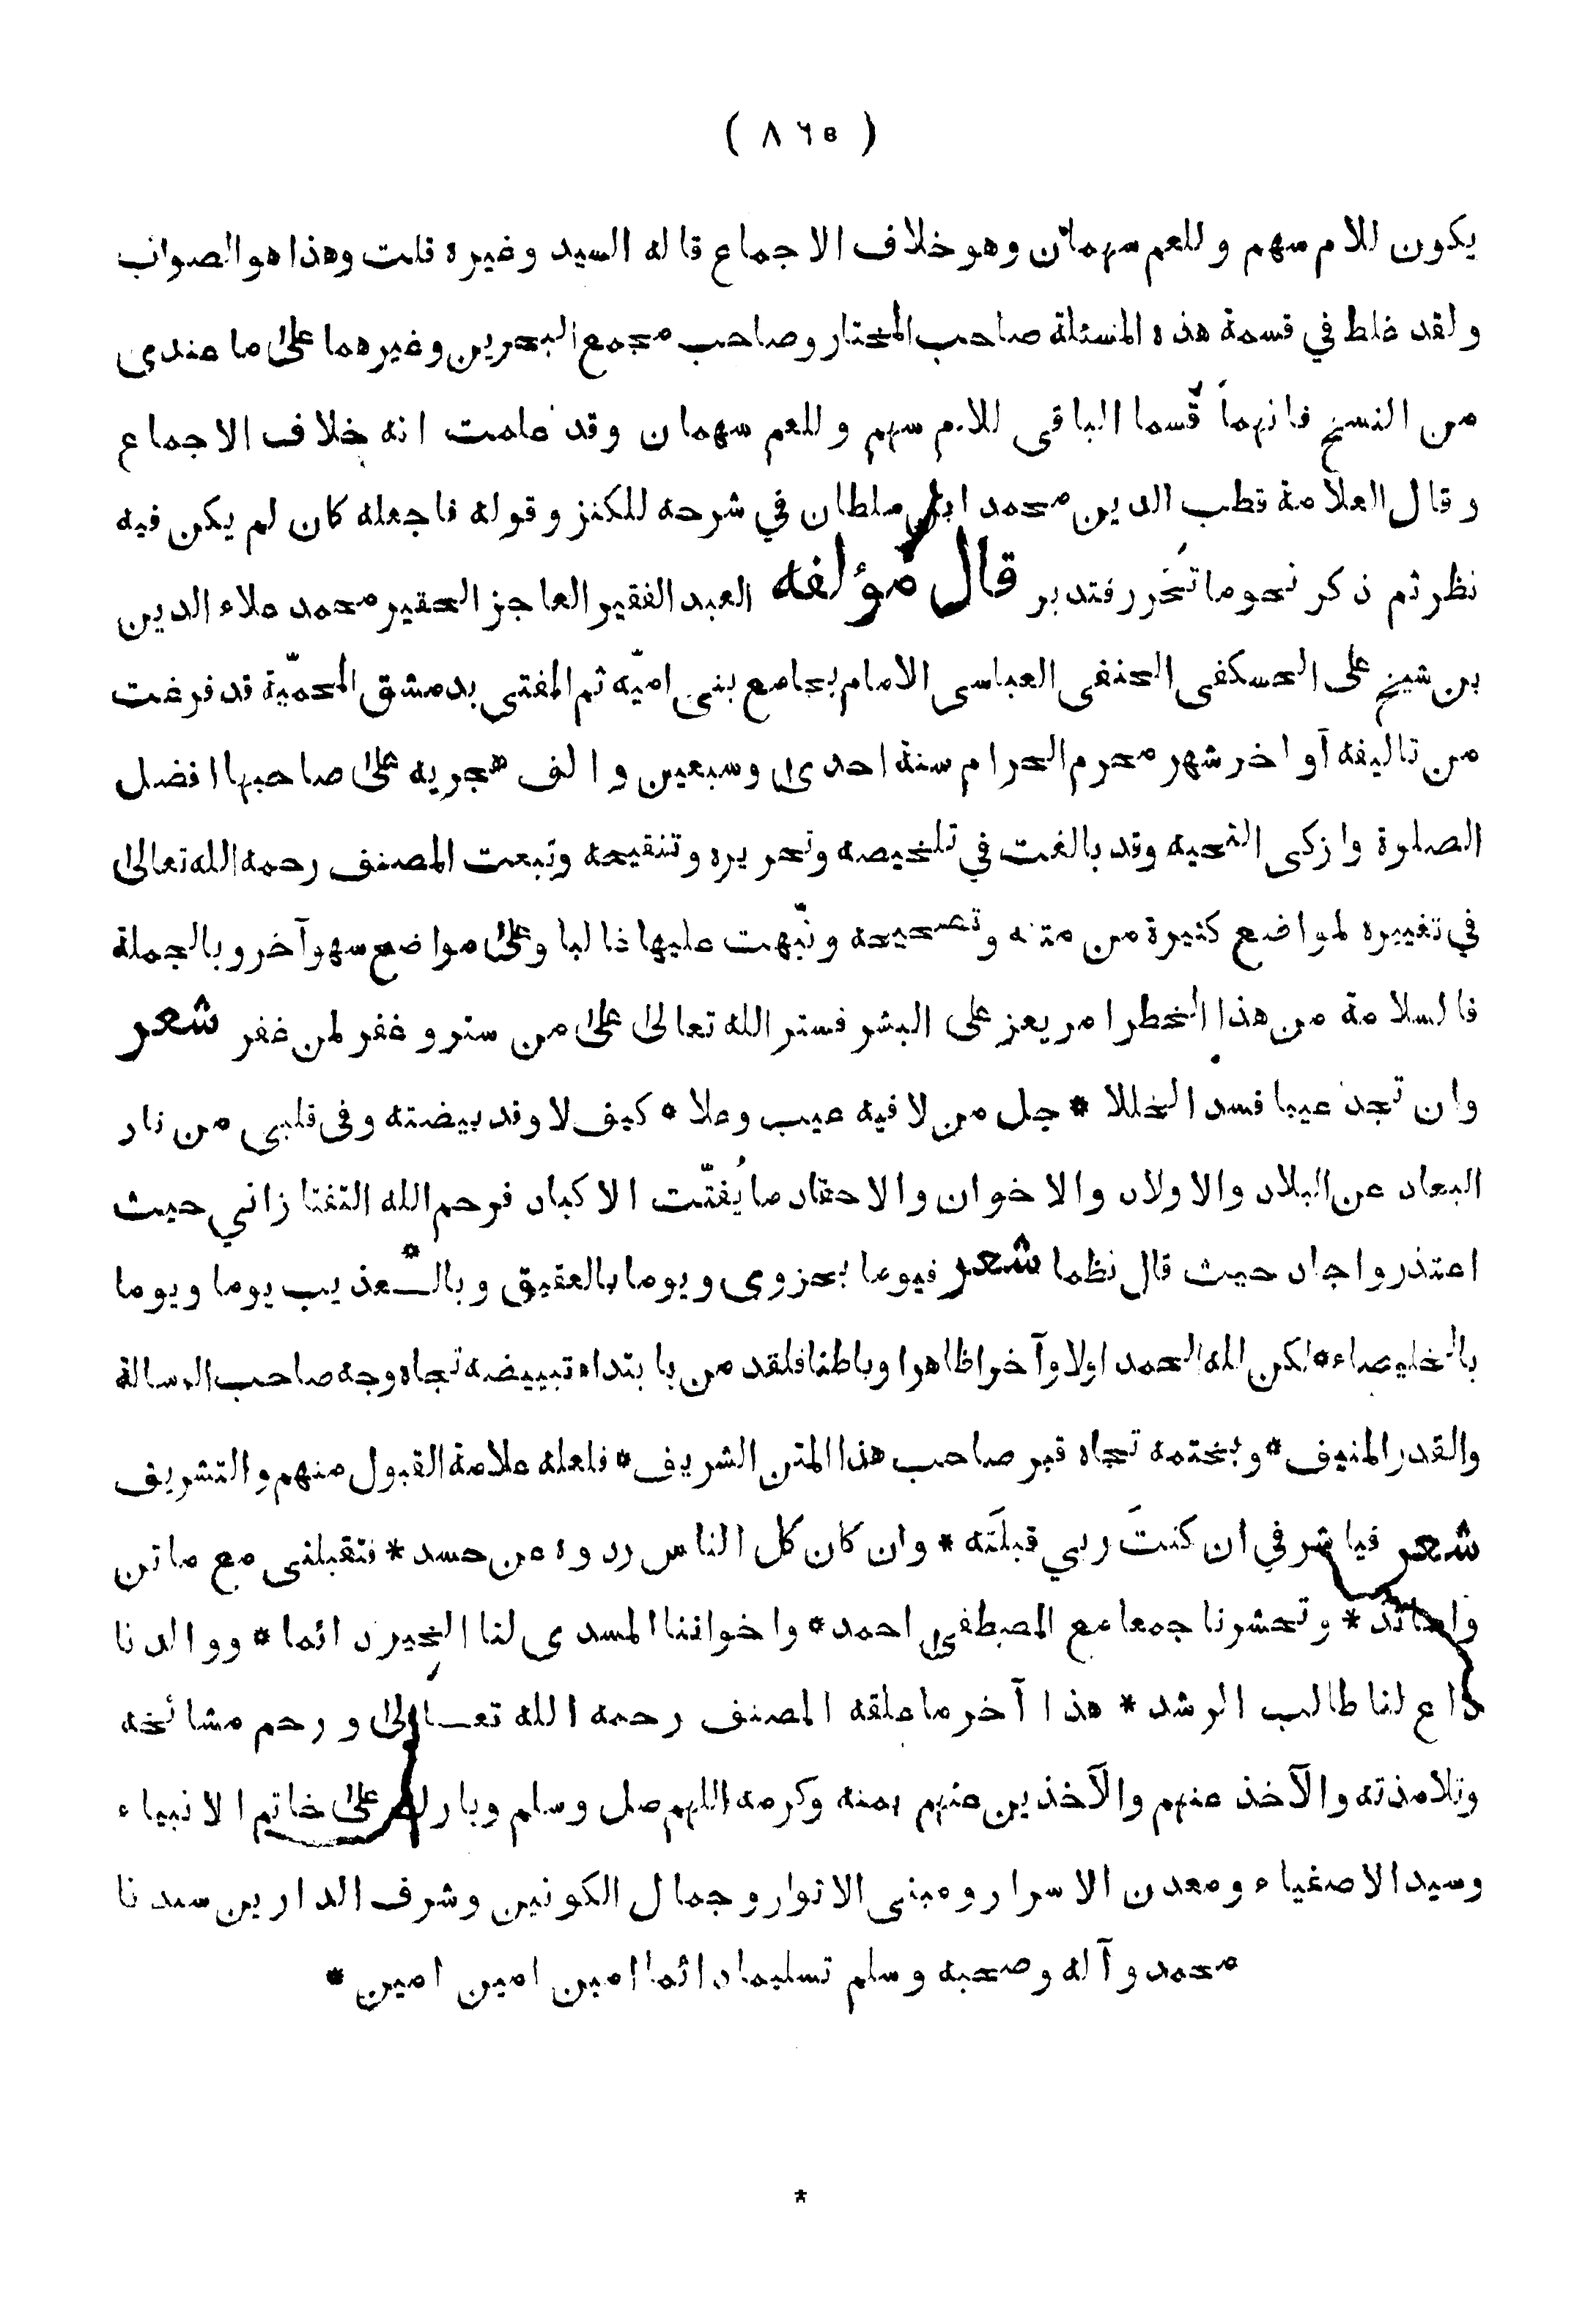 ( ٨٦٥ )
يكون للام سهم وللعم سهمان وهو خلاف الاجماع قاله السيد وغيره قلت وهذا هو الصواب
ولقد غلط في قسمة هذه المسئلة صاحب المختار وصاحب مجمع البحرين وغيرهما على ما عندى
من النسخ فانهما قسما الباقى للام سهم وللعم سهمان وقد علمت انه خلاف الاجماع
وقال العلامة قطب الدين محمد ابن سلطان في شرحه للكنز وقوله فاجعله كان لم يكن فيه
نظر ثم ذكر نحو ما تحرر فتدبر قال مؤلفه العبد الفقير العاجز الحقير محمد علاء الدين
بن شيخ على الحسكفى الحنفى العباسى الامام بجامع بنى اميّه ثم المفتى بدمشق المحميّة قد فرغت
من تاليفه آواخر شهر محرم الحرام سنة احدى وسبعين والف هجريه على صاحبها افضل
الصلوة وازكى التحيه وقد بالغت في تلخيصه وتحريره وتنقيحه وتبعت المصنف رحمه الله تعالى
في تغييره لمواضع كثيرة من متنه وتصحيحه ونّبهت عليها غالبا وعلى مواضع سهو آخر وبالجملة
فالسلامة من هذا الخطر امر يعز على البشر فستر الله تعالى على من ستر وغفر لمن غفر شعر
وان تجد عيبا فسد الخللا * جل من لا فيه عيب وعلا * كيف لا وقد بيضته وفى قلبى من نار
البعاد عن البلاد والاولاد والاخوان والاحفاد ما يُفتّت الاكباد فرحم الله التفتازاني حيث
اعتذر واجاد حيث قال نظما شعر فيوما بحزوى ويوما بالعقيق وبالـعذيب يوما ويوما
بالخليصاء * لكن لله الحمد اولا وآخرا ظاهرا وباطنا فلقد من بابتداء تبييضه تجاه وجه صاحب الرسالة
والقدر المنيف * وبختمه تجاه قبر صاحب هذا المتن الشريف * فلعله علامة القبول منهم والتشريف
شعر فيا شرفي ان كنتَ ربي قبلتَه * وان كان كل الناس ردوه عن حسد * فتقبلنى مع ماتن
واساتد * وتحشرنا جمعا مع المصطفى احمد * واخواننا المسدى لنا الخير دائما * ووالدنا
داع لنا طالب الرشد * هذا آخر ما علقه المصنف رحمه الله تعــالى ورحم مشائخه
وتلامذته والآخذ عنهم والآخذين عنهم بمنه وكرمه اللهم صل وسلم وبارك على خاتم الانبياء
وسيد الاصفياء ومعدن الاسرار ومبنى الانوار وجمال الكونين وشرف الدارين سيدنا
محمد وآله وصحبه وسلم تسليما دائما امين امين امين *
*